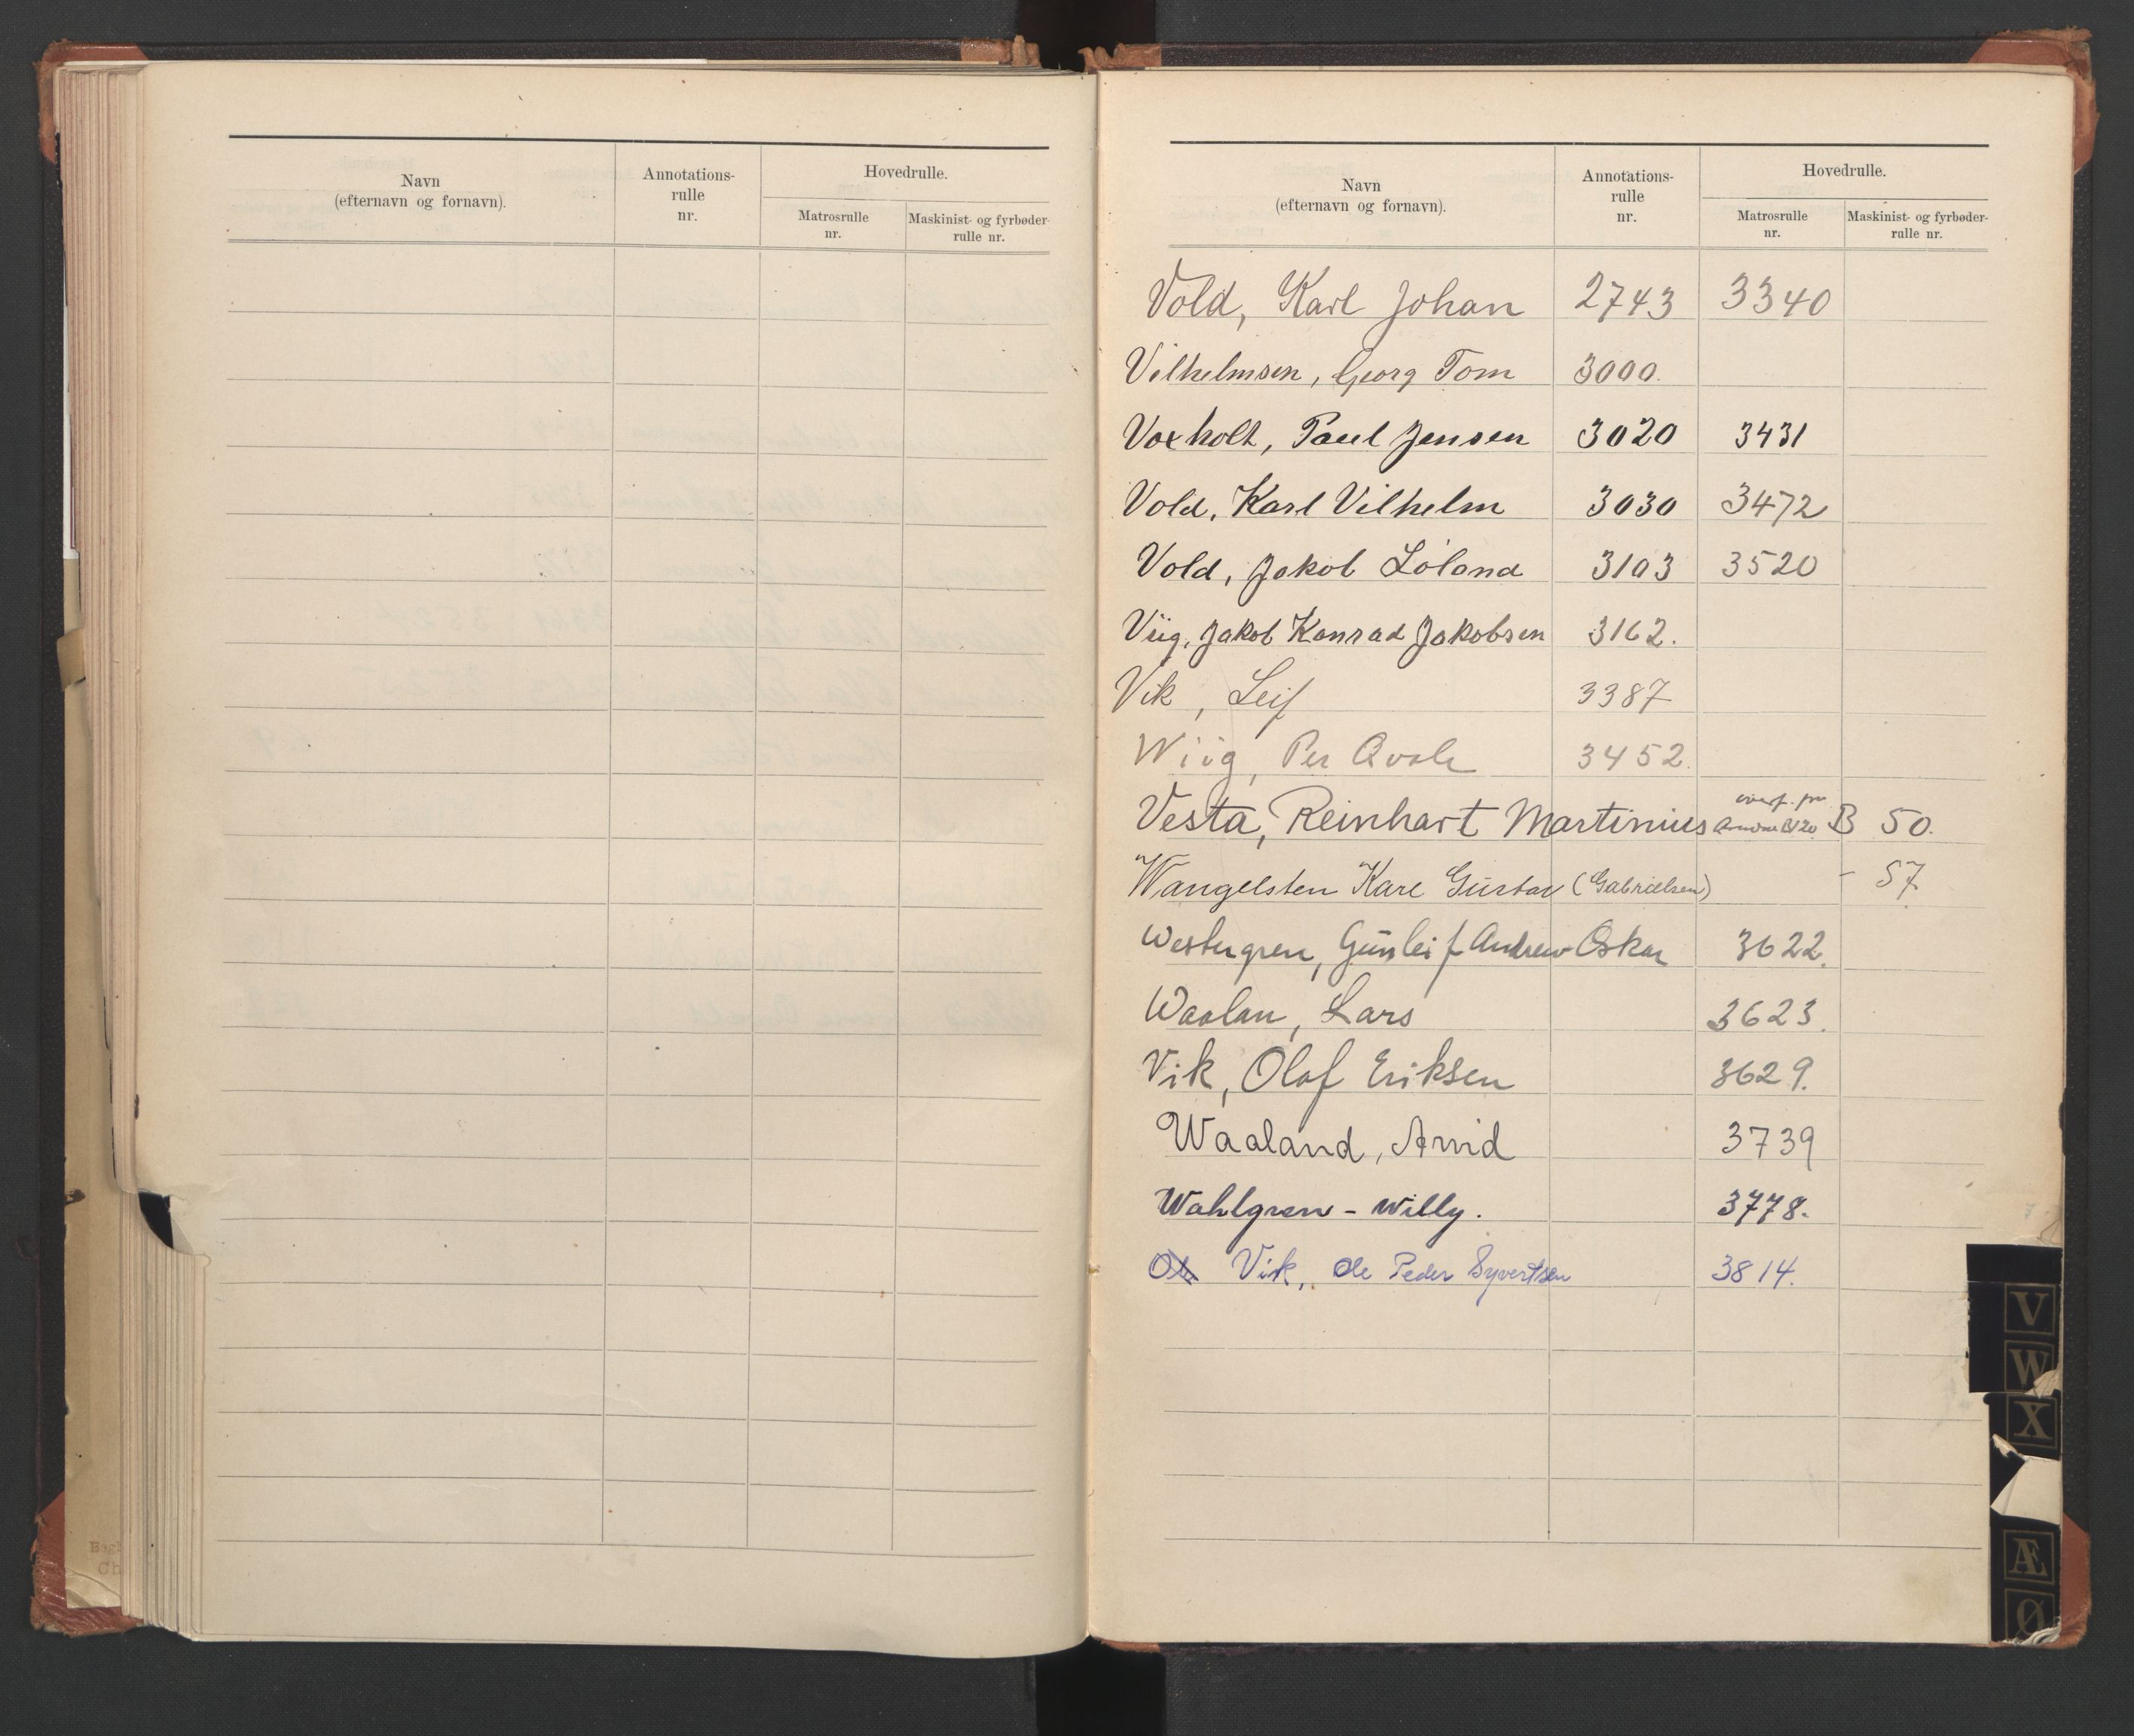 Navn
(efternavn og fornavn).
Annotations-
rulle
nr.
Hovedrulle.
Matrosrulle
nr.
Maskinist- og fyrbøder-
rulle nr.
Navn
(efternavn og fornavn).
Annotations-
rulle
nr.
Hovedrulle.
Matrosrulle
nr.
Maskinist- og fyrbøder-
rulle nr.
Vold, Karl Johan 2743 3340
Vilhelmsen, Georg Tom 3000.
Voxholt, Paul Jensen 3020 3431
Vold, Karl Vilhelm 3030 3472
Vold, Jakob Löland 3103 3520
Viig, Jakob Konrad Jakobsen 3162.
Vik, Leif 3387
Wiig, Per Qvale 3452.
Vesta, Reinhart Martinius overf. fra B 50.
Wangelsten Kare Gustav (Gabrielsen) - 57
Westergren, Gunleif Andrew Oskar 3622.
Waalan, Lars 3623.
Vik, Olaf Eriksen 3629.
Waaland, Arvid 3739
Wahlgren - Willy. 3778.
Vik, Ole Peder Syvertsen 3814.
V
W
X
Æ
Ø